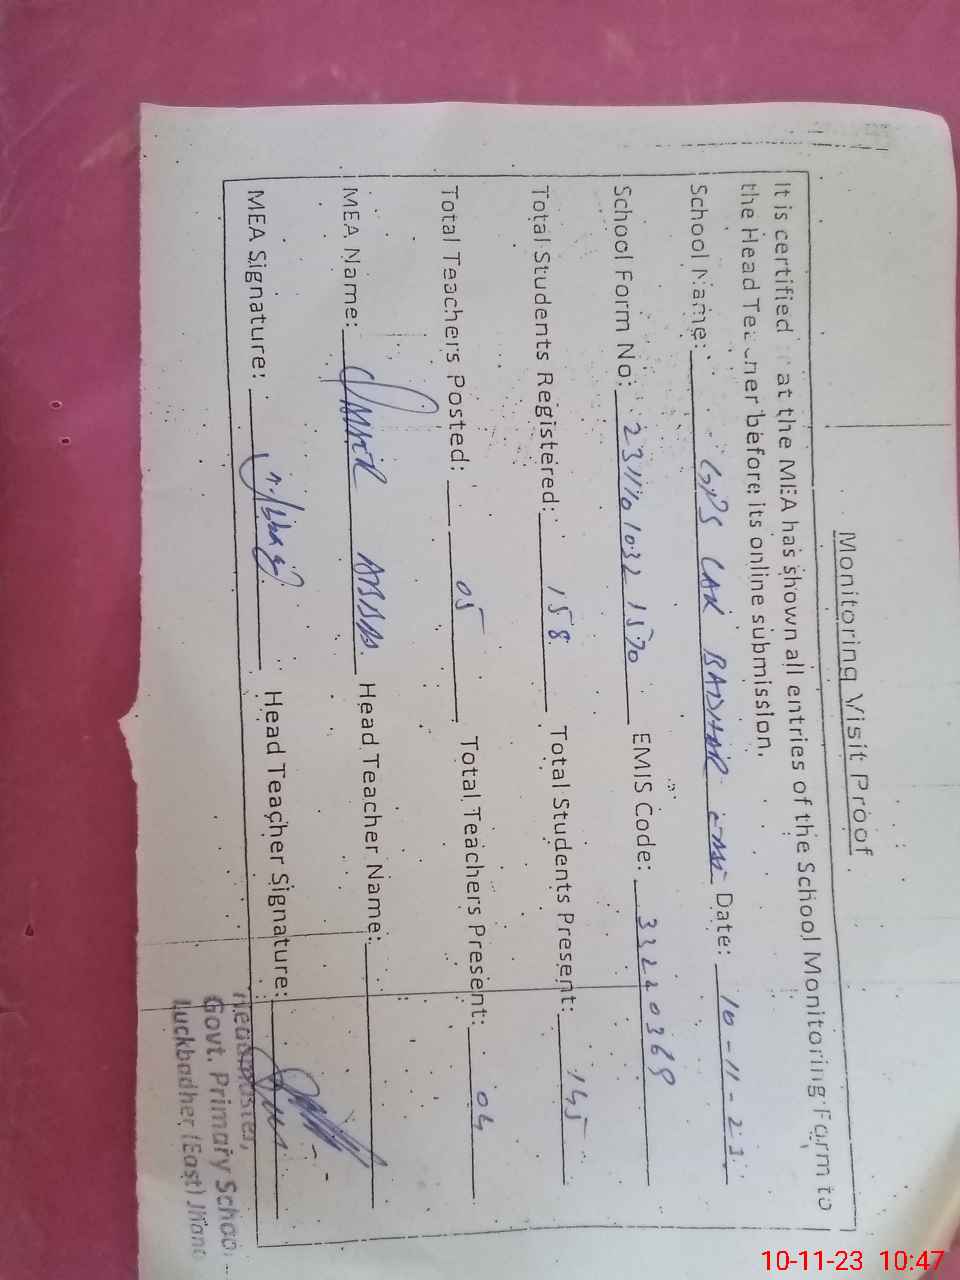 Monitoring Visit Proof
It is certified at the MEA has shown all entries of the School Monitoring Form to
the Head Teacher before its online submission.
School Name: GPS LAK BADHAR Date: 10-11-23
School Form No: EMIS Code: 33220369
Total Students Registered: 158 Total Students Present: 145
Total Teachers Posted: 05 Total Teachers Present: 04
MEA Name: ABBAS Head Teacher Name:
MEA Signature: Head Teacher Signature:
Headmaster,
Govt. Primary School
Luckbadher (East) Jhang
10-11-23 10:47